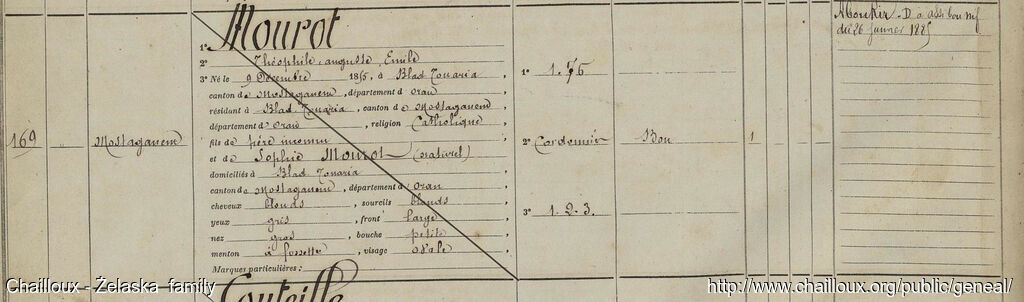 Mourot
1º
2º Théophile, auguste, Emile
3º Né le 9 Décembre 185, à Blad Touaria
canton de Mostaganem, département d'oran
résidant à Blad Touaria, canton de Mostaganem
département d'oran, religion Catholique
fils de père inconnu
et de Sophie Mourot (naturel)
domiciliés à Blad Touaria
canton de Mostaganem, département d'oran
cheveux blonds, sourcils blonds
yeux gris, front large
nez gros, bouche petite
menton à fossette, visage ovale
Marques particulières :
169
Mostaganem
1º 1.
2º Cordonnier Bon 1
3º 1. 2. 3.
Aboukir. D. à
du 26 Janvier 1885
Couteille
Chailloux - Żelaska family
http://www.chailloux.org/public/geneal/